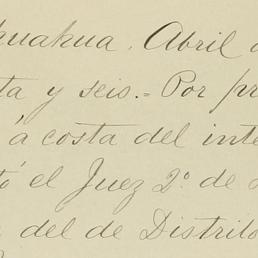 huahua, Abril
ta y seis.= Por pr
á costa del inte
tó el Juez 2º de
del de Distrito